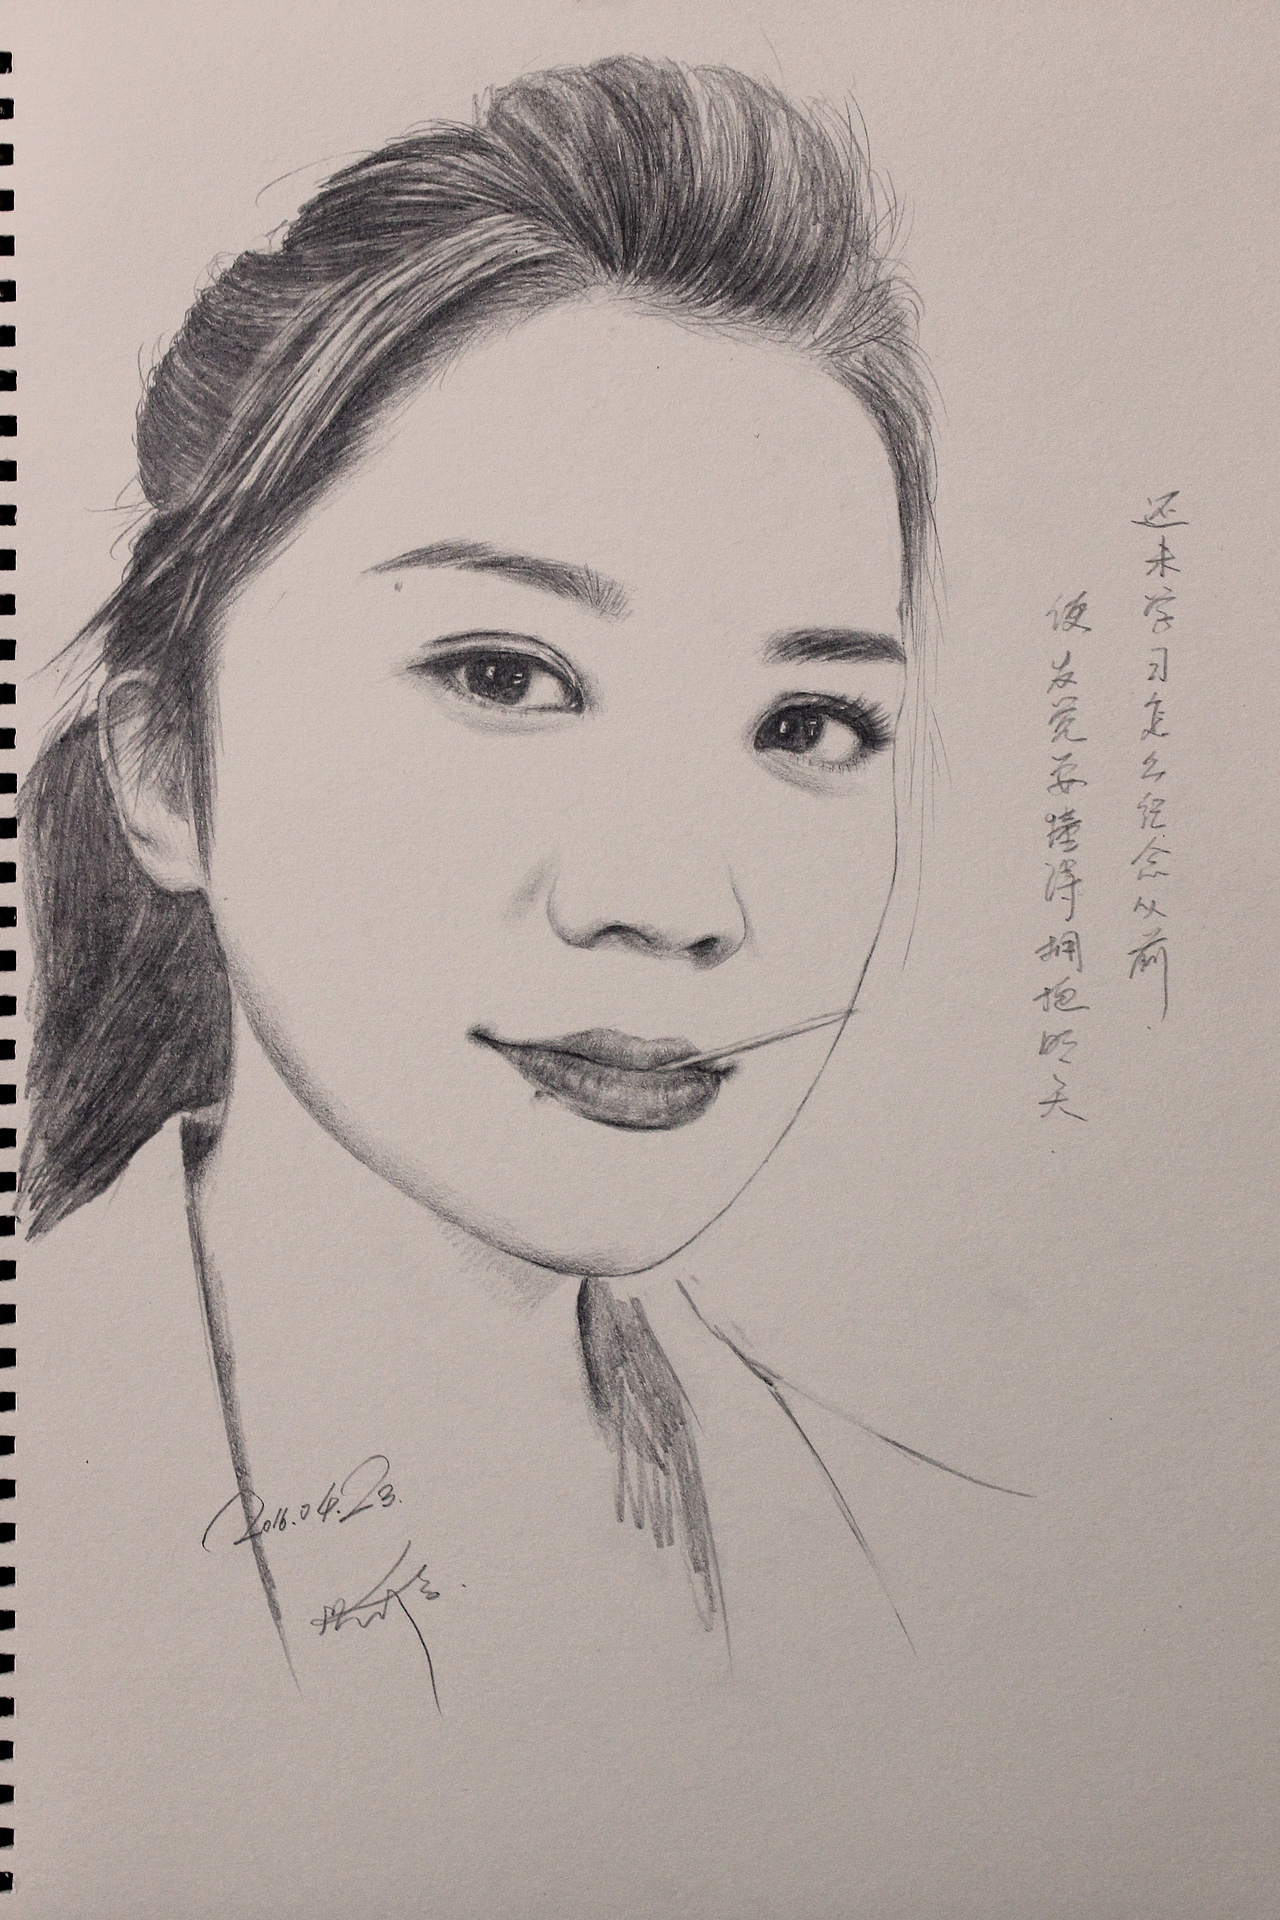 还未学习怎么纪念从前
便发觉要懂得拥抱明天
2016.04.23.